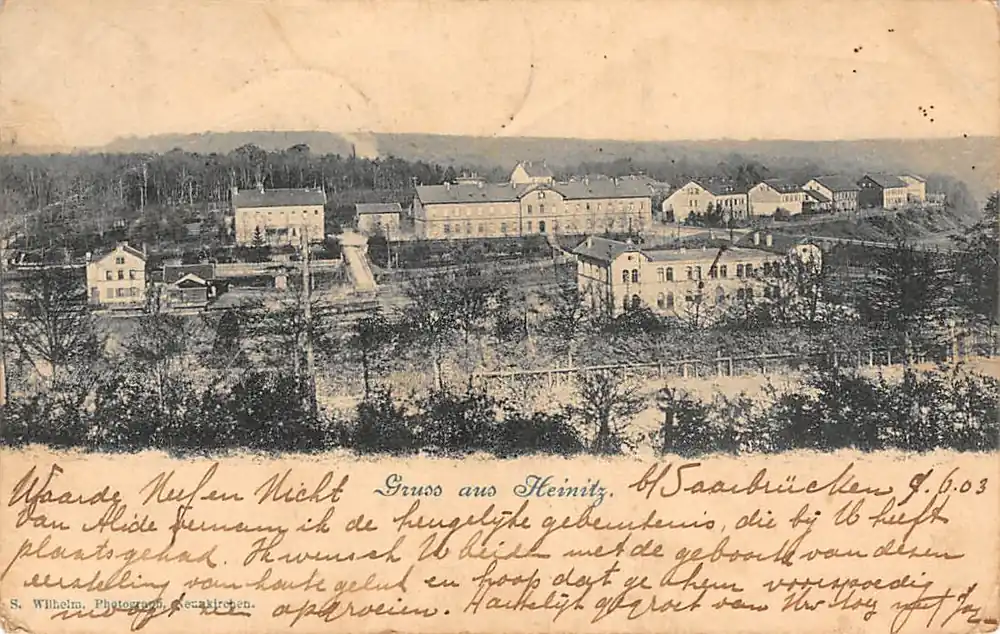 Gruss aus Heinitz.
Waarde Neef en Nicht b/ Saarbrücken 9.6.03
Van Alide vernam ik de heugelijke gebeurtenis, die bij U heeft
plaatsgehad. Ik wensch U beiden met de geboorte van dezen
eersteling van harte geluk en hoop dat ge hem voorspoedig
moogt zien opgroeien. Hartelijk gegroet van Uw
S. Wilhelm, Photograph, Neunkirchen.